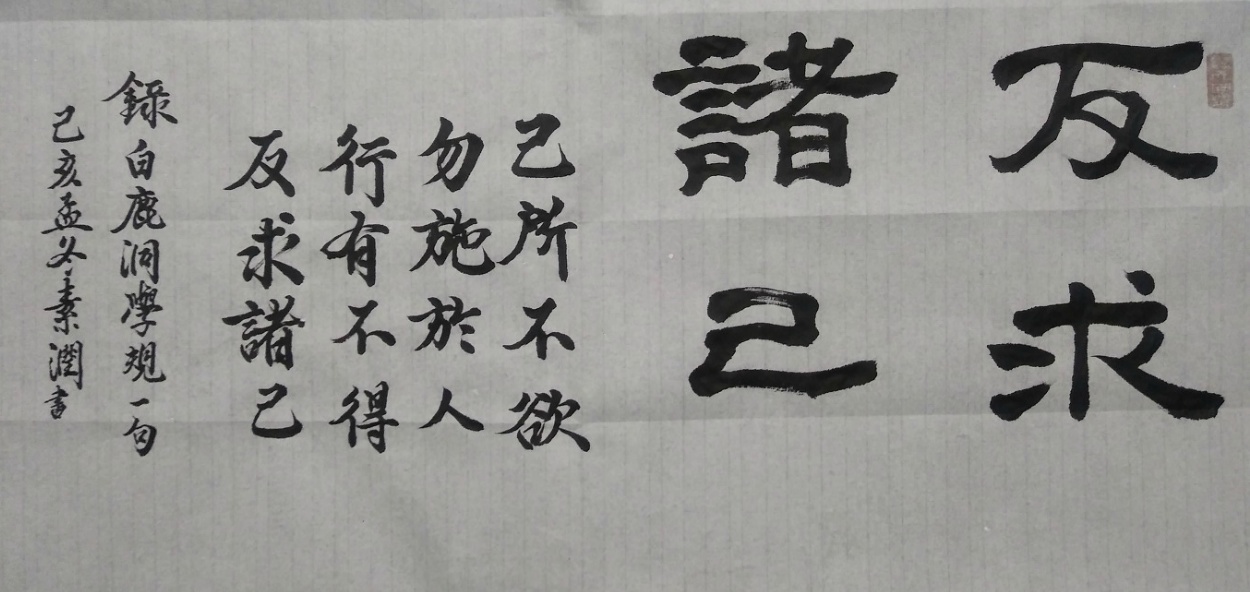 反求
諸己
己所不欲
勿施於人
行有不得
反求諸己
錄白鹿洞學規一句
己亥孟冬素潤書